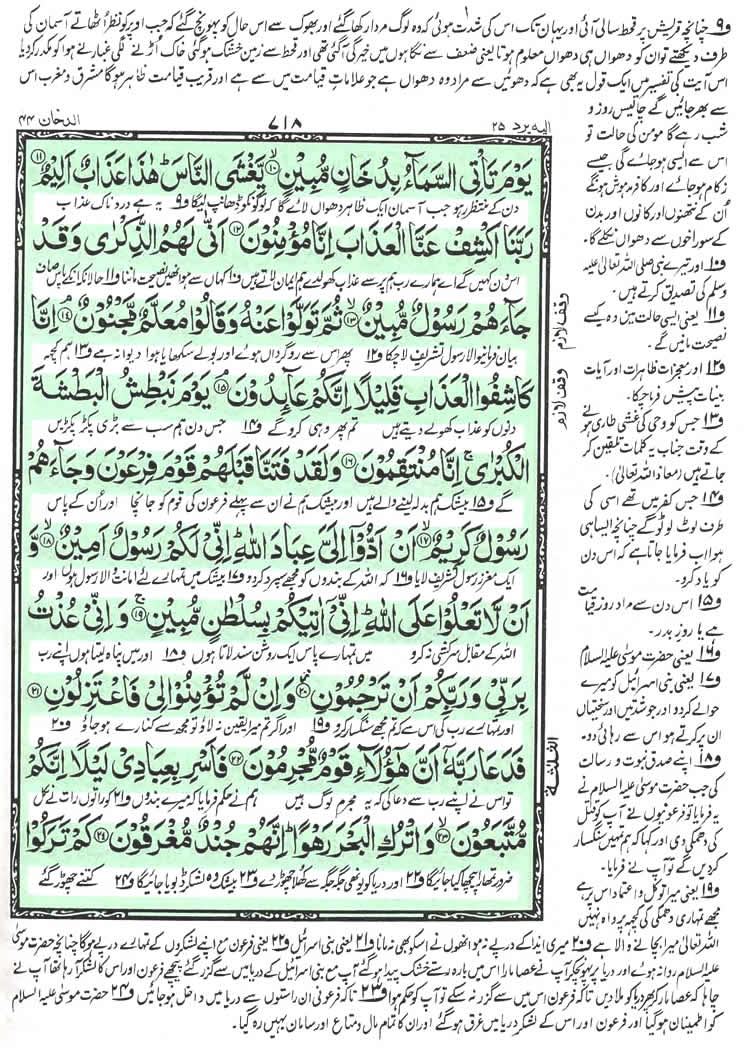 و۹ چنانچہ قریش پر قحط سالی آئی اور یہاں تک اس کی شدت ہوئی کہ وہ لوگ مردار کھا گئے اور بھوک سے اس حال کو پہونچ گئے کہ جب اوپر کو نظر اٹھاتے آسمان کی
طرف دیکھتے تو ان کو دھواں ہی دھواں معلوم ہوتا یعنی ضعف سے نگاہوں میں خیرگی آگئی تھی اور قحط سے زمین خشک ہوگئی خاک اڑنے لگی غبار نے ہوا کو مکدر کردیا
اس آیت کی تفسیر میں ایک قول یہ بھی ہے کہ دھوئیں سے مراد وہ دھواں ہے جو علامات قیامت میں سے ہے اور قریب قیامت ظاہر ہوگا مشرق و مغرب اس
سے بھر جائیں گے چالیس روز و
شب رہے گا مؤمن کی حالت تو
اس سے ایسی ہوجائے گی جیسے
زکام ہوجائے اور کافر مدہوش ہونگے
اُن کے نتھنوں اور کانوں اور بدن
کے سوراخوں سے دھواں نکلے گا۔
و۱۰ اور تیرے نبی صلی اللہ تعالیٰ علیہ
وسلم کی تصدیق کرتے ہیں۔
و۱۱ یعنی ایسی حالت میں وہ کیسے
نصیحت مانیں گے۔
و۱۲ اور معجزات ظاہرات اور آیات
بینات پیش فرما چکا۔
و۱۳ جس کو وحی کی غشی طاری ہونے
کے وقت جناب یہ کلمات تلقین کر
جاتے ہیں (معاذ اللہ تعالیٰ)۔
و۱۴ جس کفر میں تھے اسی کی
طرف لوٹ لوٹو گے چنانچہ ایسا ہی
ہوا اب فرمایا جاتا ہے کہ اس دن
کو یاد کرو۔
و۱۵ اس دن سے مراد روز قیامت
ہے یا روز بدر۔
و۱۶ یعنی حضرت موسیٰ علیہ السلام
و۱۷ یعنی بنی اسرائیل کو میرے
حوالے کردو اور جو شدتیں اور سختیاں
ان پر کرتے ہو اس سے رہائی دو۔
و۱۸ اپنے صدق نبوت و رسالت
کی جب حضرت موسیٰ علیہ السلام نے
یہ فرمایا تو فرعونیوں نے آپ کو قتل
کی دھمکی دی اور کہا کہ ہم تمہیں سنگسار
کردیں گے تو آپ نے فرمایا۔
و۱۹ یعنی میرا توکل و اعتماد اس پر ہے
مجھے تمہاری دھمکی کی کچھ پرواہ نہیں
الیہ یرد ۲۵
۷۱۸
الدخان ۴۴
يَوْمَ تَأْتِي السَّمَاءُ بِدُخَانٍ مُّبِينٍ ۱۰ يَغْشَى النَّاسَ هٰذَا عَذَابٌ اَلِيمٌ ۱۱
دن کے منتظر رہو جب آسمان ایک ظاہر دھواں لائے گا کہ لوگوں کو ڈھانپ لیگا و۹ یہ ہے دردناک عذاب
رَبَّنَا اكْشِفْ عَنَّا الْعَذَابَ اِنَّا مُؤْمِنُونَ ۱۲ اَنّٰى لَهُمُ الذِّكْرٰى وَقَدْ
اس دن کہیں گے اے ہمارے رب ہم پر سے عذاب کھولدے ہم ایمان لاتے ہیں و۱۰ کہاں سے ہو انھیں نصیحت ماننا و۱۱ حالانکہ انکے پاس صاف
جَاءَهُمْ رَسُولٌ مُّبِينٌ ۱۳ ثُمَّ تَوَلَّوْا عَنْهُ وَقَالُوا مُعَلَّمٌ مَّجْنُونٌ ۱۴ اِنَّا
بیان فرمانیوالا رسول تشریف لاچکا و۱۲ پھر اس سے روگرداں ہوئے اور بولے سکھایا ہوا دیوانہ ہے و۱۳ ہم کچھ
كَاشِفُوا الْعَذَابِ قَلِيلًا اِنَّكُمْ عَائِدُونَ ۱۵ يَوْمَ نَبْطِشُ الْبَطْشَةَ
دنوں کو عذاب کھولے دیتے ہیں تم پھر وہی کرو گے و۱۴ جس دن ہم سب سے بڑی پکڑ پکڑیں
الْكُبْرٰى اِنَّا مُنْتَقِمُونَ ۱۶ وَلَقَدْ فَتَنَّا قَبْلَهُمْ قَوْمَ فِرْعَوْنَ وَجَاءَهُمْ
گے و۱۵ بیشک ہم بدلہ لینے والے ہیں اور بیشک ہم نے ان سے پہلے فرعون کی قوم کو جانچا اور اُن کے پاس
رَسُولٌ كَرِيمٌ ۱۷ اَنْ اَدُّوا اِلَيَّ عِبَادَ اللّٰهِ اِنِّي لَكُمْ رَسُولٌ اَمِينٌ ۱۸ وَّ
ایک معزز رسول تشریف لایا و۱۶ کہ اللہ کے بندوں کو مجھے سپرد کردو و۱۷ بیشک میں تمہارے لئے امانت والا رسول ہوں اور
اَنْ لَّا تَعْلُوا عَلَى اللّٰهِ اِنِّي اٰتِيكُمْ بِسُلْطٰنٍ مُّبِينٍ ۱۹ وَاِنِّي عُذْتُ
اللہ کے مقابل سرکشی نہ کرو میں تمہارے پاس ایک روشن سند لاتا ہوں و۱۸ اور میں پناہ لیتا ہوں اپنے رب
بِرَبِّي وَرَبِّكُمْ اَنْ تَرْجُمُونِ ۲۰ وَاِنْ لَّمْ تُؤْمِنُوا لِي فَاعْتَزِلُونِ ۲۱
اور تمہارے رب کی اس سے کہ تم مجھے سنگسار کرو و۱۹ اور اگر تم میرا یقین نہ لاؤ تو مجھ سے کنارے ہو جاؤ و۲۰
فَدَعَا رَبَّهُ اَنَّ هٰؤُلَاءِ قَوْمٌ مُّجْرِمُونَ ۲۲ فَاَسْرِ بِعِبَادِي لَيْلًا اِنَّكُمْ
تو اس نے اپنے رب سے دعا کی کہ یہ مجرم لوگ ہیں ہم نے حکم فرمایا کہ میرے بندوں و۲۱ کو راتوں رات لے نکل
مُّتَّبَعُونَ ۲۳ وَاتْرُكِ الْبَحْرَ رَهْوًا اِنَّهُمْ جُنْدٌ مُّغْرَقُونَ ۲۴ كَمْ تَرَكُوا
ضرور تمھارا پیچھا کیا جائیگا و۲۲ اور دریا کو یونہی جگہ جگہ سے کھلا چھوڑ دے و۲۳ بیشک وہ لشکر ڈبویا جائیگا و۲۴ کتنے چھوڑ گئے
وقف لازم
وقف لازم
الثلثة
اللہ تعالیٰ میرا بچانے والا ہے و۲۰ میری ایذا کے درپے نہ ہو انھوں نے اسکو بھی نہ مانا و۲۱ یعنی بنی اسرائیل و۲۲ یعنی فرعون مع اپنے لشکروں کے تمہارے درپے ہوگا چنانچہ حضرت موسیٰ
علیہ السلام روانہ ہوئے اور دریا پر پہونچکر آپ نے عصا مارا اس میں بارہ رستے خشک پیدا ہوگئے آپ مع بنی اسرائیل کے دریا میں سے گزر گئے پیچھے فرعون اور اس کا لشکر آرہا تھا آپ نے
چاہا کہ عصا مار کر پھر دریا کو ملا دیں تاکہ فرعون اس میں سے گزر نہ سکے تو آپ کو حکم ہوا و۲۳ تاکہ فرعونی ان راستوں سے دریا میں داخل ہو جائیں و۲۴ حضرت موسیٰ علیہ السلام
کو اطمینان ہوگیا اور فرعون اور اس کے لشکر دریا میں غرق ہوگئے اور ان کا تمام مال و متاع اور سامان یہیں رہ گیا۔